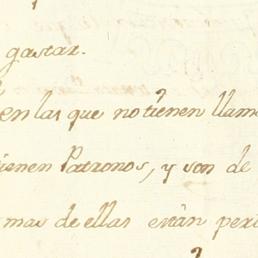 gastar.
en las que no tienen llam
ienen Patronos, y son de
mas de ellas están per